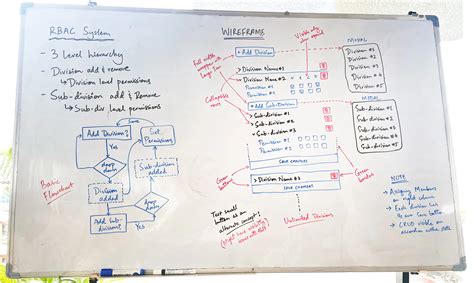 RBAC System
- 3 Level hierarchy
- Division add & remove
↳ Division level permissions
- Sub-division add & Remove
↳ Sub-div level permissions
Save
Add Division?
Set
Permissions
Yes
drop
down
Sub-division
added
Division
added
Yes
drop
down
Add Sub-
division?
Basic
Flowchart
WIREFRAME
Full width
Collapsible
rows
+ Add Division
> Division Name #1
Division Name #2
Permission #1
Permission #2
+ Add Sub-Division
> Sub-division #1
> Sub-division #2
Sub-division #3
Permission #1
Permission #2
SAVE CHANGES
> Division Name #3
SAVE CHANGES
Green
button
Green
borders
Unlimited Divisions
Test small
button as an
alternate concept!
Visible only
MODAL
Division #1
Division #2
Division #3
Division #4
Division #5
MODAL
Sub-division #1
Sub-division #2
Sub-division #3
Sub-division #4
Sub-division #5
NOTE
→ Assigning Members
→ Each division has
its own Save button
→ CRUD visible on
accordion active state